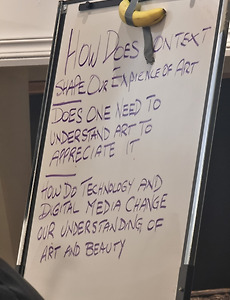 HOW DOES CONTEXT
SHAPE OUR EXPERIENCE OF ART
DOES ONE NEED TO
UNDERSTAND ART TO
APPRECIATE IT
HOW DO TECHNOLOGY AND
DIGITAL MEDIA CHANGE
OUR UNDERSTANDING OF
ART AND BEAUTY